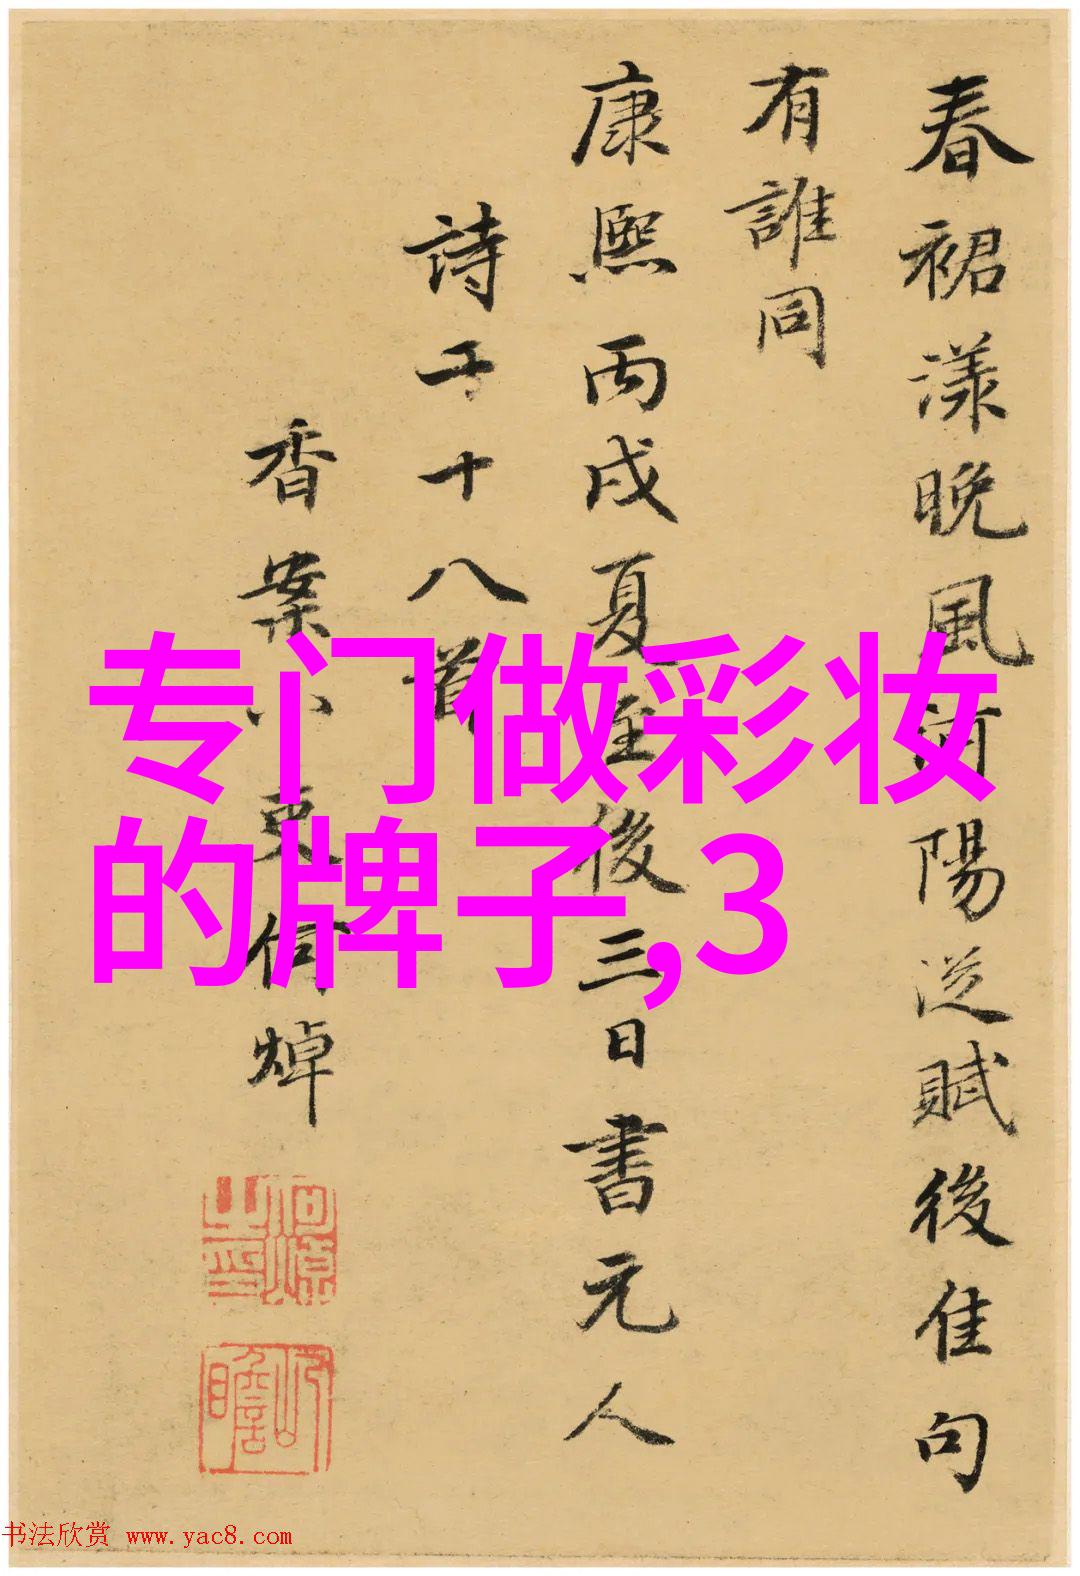 春裙漾晚風河陽從賦後佳句
有誰同
康熙丙戌夏至後三日書元人
詩于十八首
香案小吏何焯
何焯之印
屺瞻
专门做彩妆
的牌子,3
书法欣赏 www.yac8.com